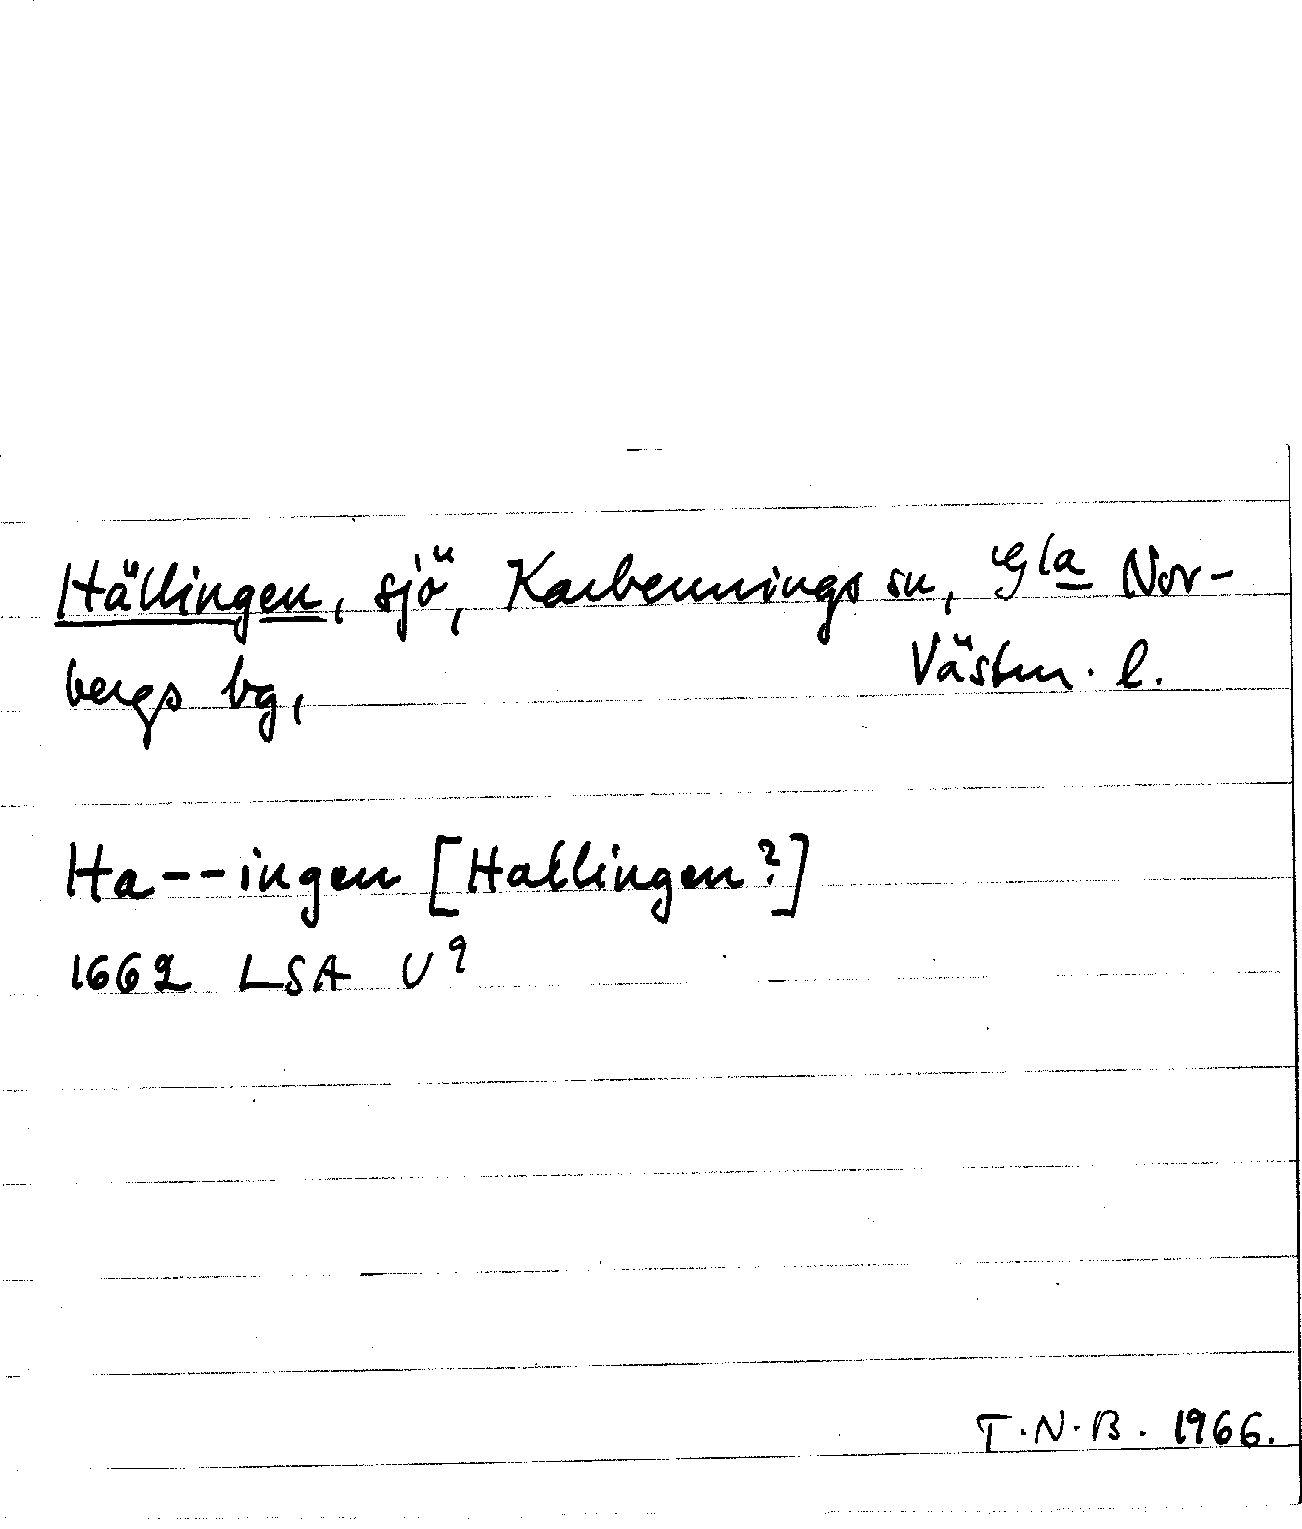 Hällingen, sjö, Karbennings sn, Gla Nor-
bergs bg, Västm. l.
Ha--ingen [Hallingen?]
1662 LSA U9
T.N.B. 1966.